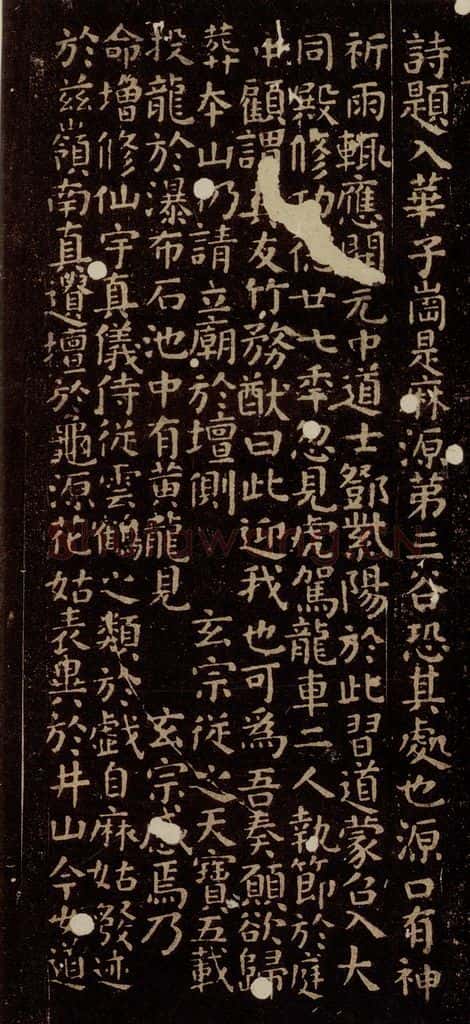 詩題入華子崗是麻源第三谷恐其處也源口有神
祈雨輒應開元中道士鄧紫陽於此習道蒙召入大
同殿修功德廿七年忽見虎駕龍車二人執節於庭
中顧謂其友竹務猷曰此迎我也可為吾奏願欲歸
葬本山仍請立廟於壇側玄宗從之天寶五載
投龍於瀑布石池中有黃龍見玄宗感焉乃
命增修仙宇真儀侍從雲鶴之類於戲自麻姑發迹
於茲嶺南真遺壇於龜源花姑表異於井山今女道